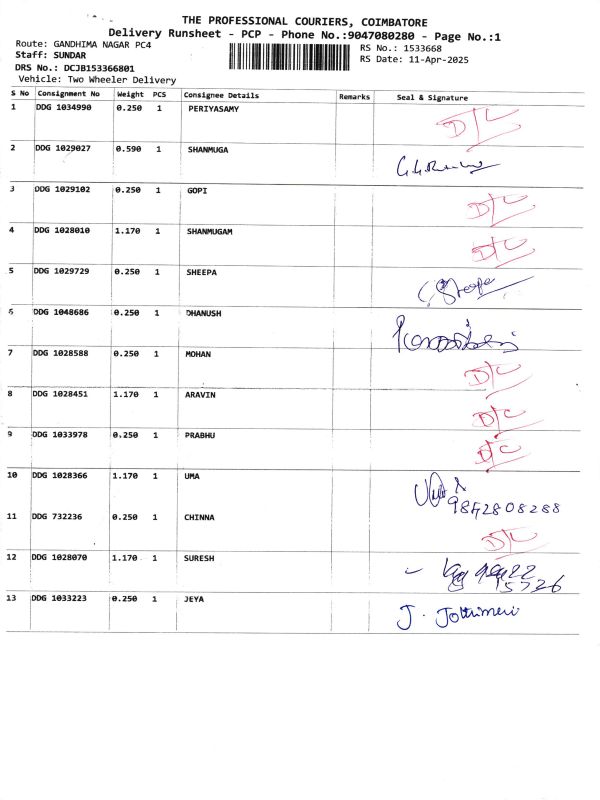 THE PROFESSIONAL COURIERS, COIMBATORE
Delivery Runsheet - PCP - Phone No.:9047080280 - Page No.:1
Route: GANDHIMA NAGAR PC4
Staff: SUNDAR
DRS No.: DCJB153366801
Vehicle: Two Wheeler Delivery
RS No.: 1533668
RS Date: 11-Apr-2025
S No Consignment No Weight PCS Consignee Details Remarks Seal & Signature
1 DDG 1034990 0.250 1 PERIYASAMY D/C
2 DDG 1029027 0.590 1 SHANMUGA
3 DDG 1029102 0.250 1 GOPI D/C
4 DDG 1028010 1.170 1 SHANMUGAM D/C
5 DDG 1029729 0.250 1 SHEEPA
6 DDG 1048686 0.250 1 DHANUSH
7 DDG 1028588 0.250 1 MOHAN D/C
8 DDG 1028451 1.170 1 ARAVIN D/C
9 DDG 1033978 0.250 1 PRABHU D/C
10 DDG 1028366 1.170 1 UMA
9842808288
11 DDG 732236 0.250 1 CHINNA D/C
12 DDG 1028070 1.170 1 SURESH
15726
13 DDG 1033223 0.250 1 JEYA J.